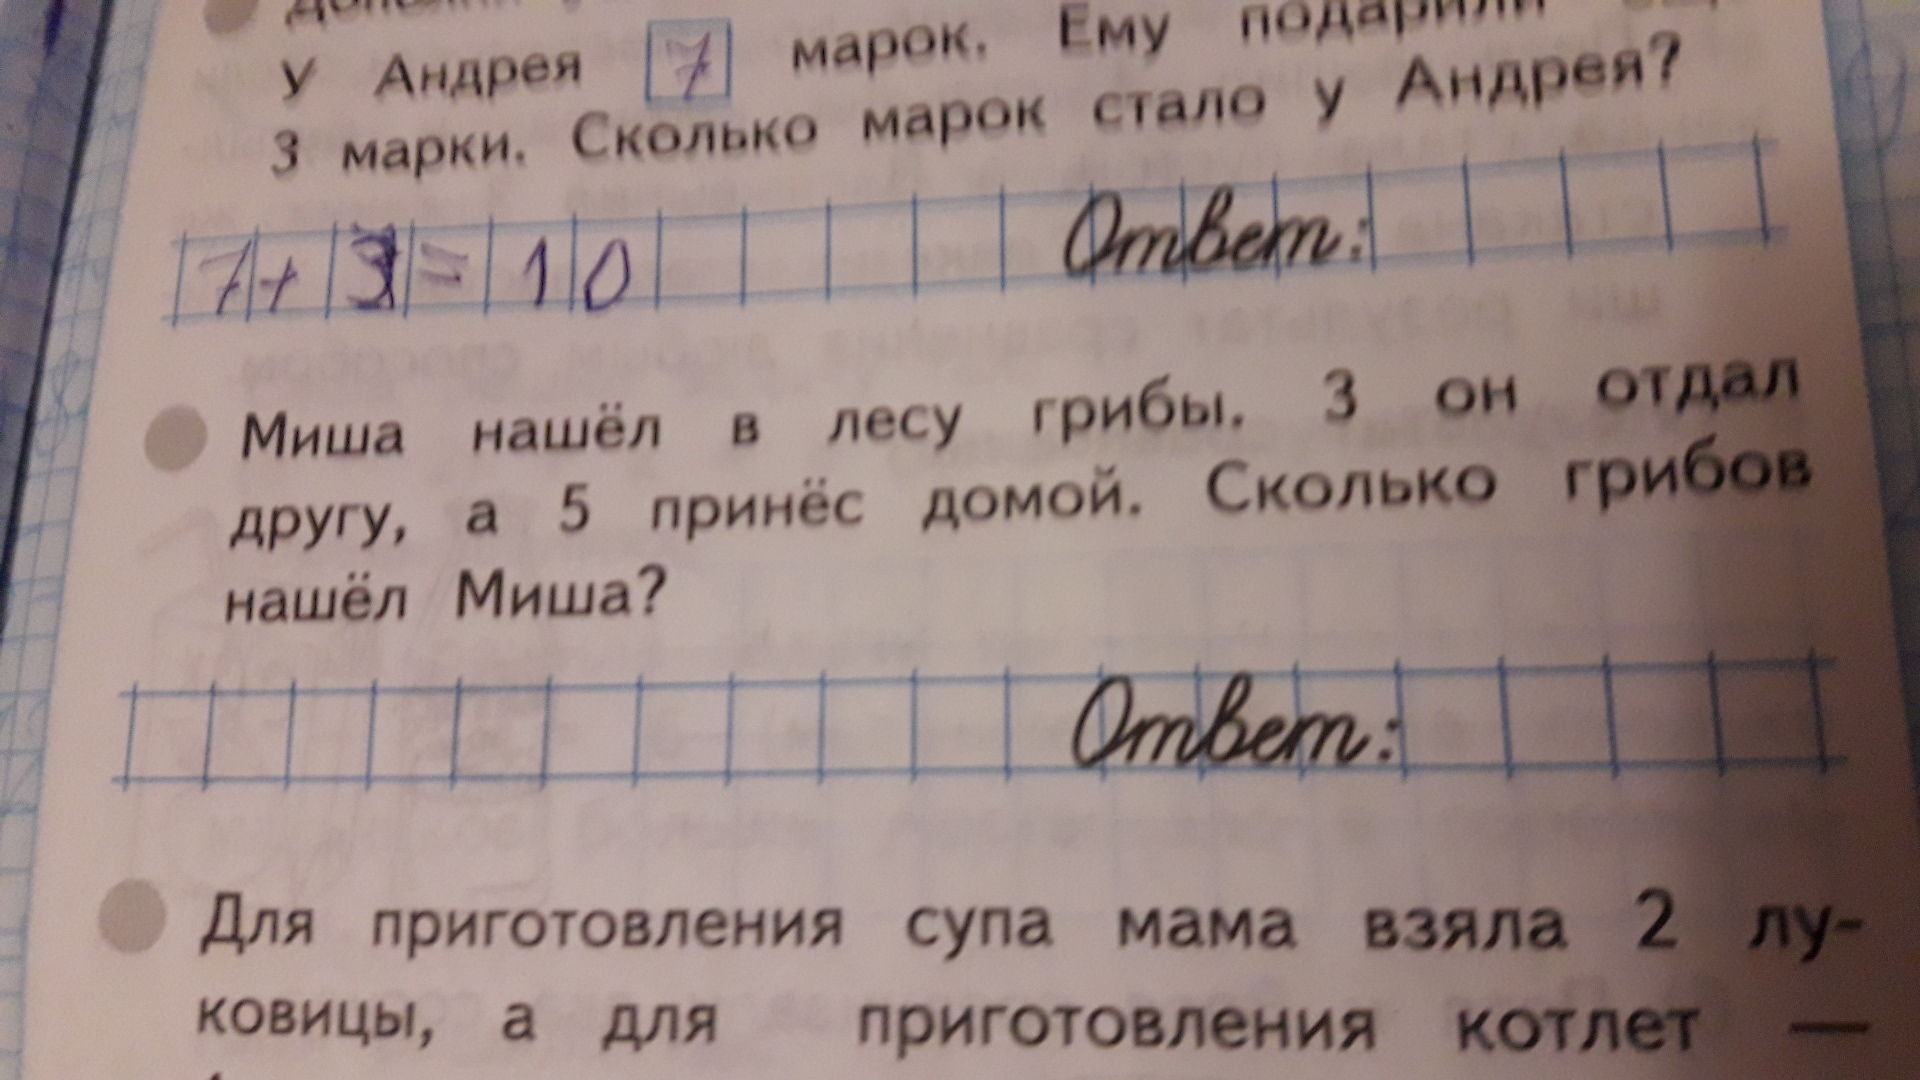 У Андрея 7 марок. Ему подарили
3 марки. Сколько марок стало у Андрея?
7+3=10 Ответ:
Миша нашёл в лесу грибы. 3 он отдал
другу, а 5 принёс домой. Сколько грибов
нашёл Миша?
Ответ:
Для приготовления супа мама взяла 2 лу-
ковицы, а для приготовления котлет —